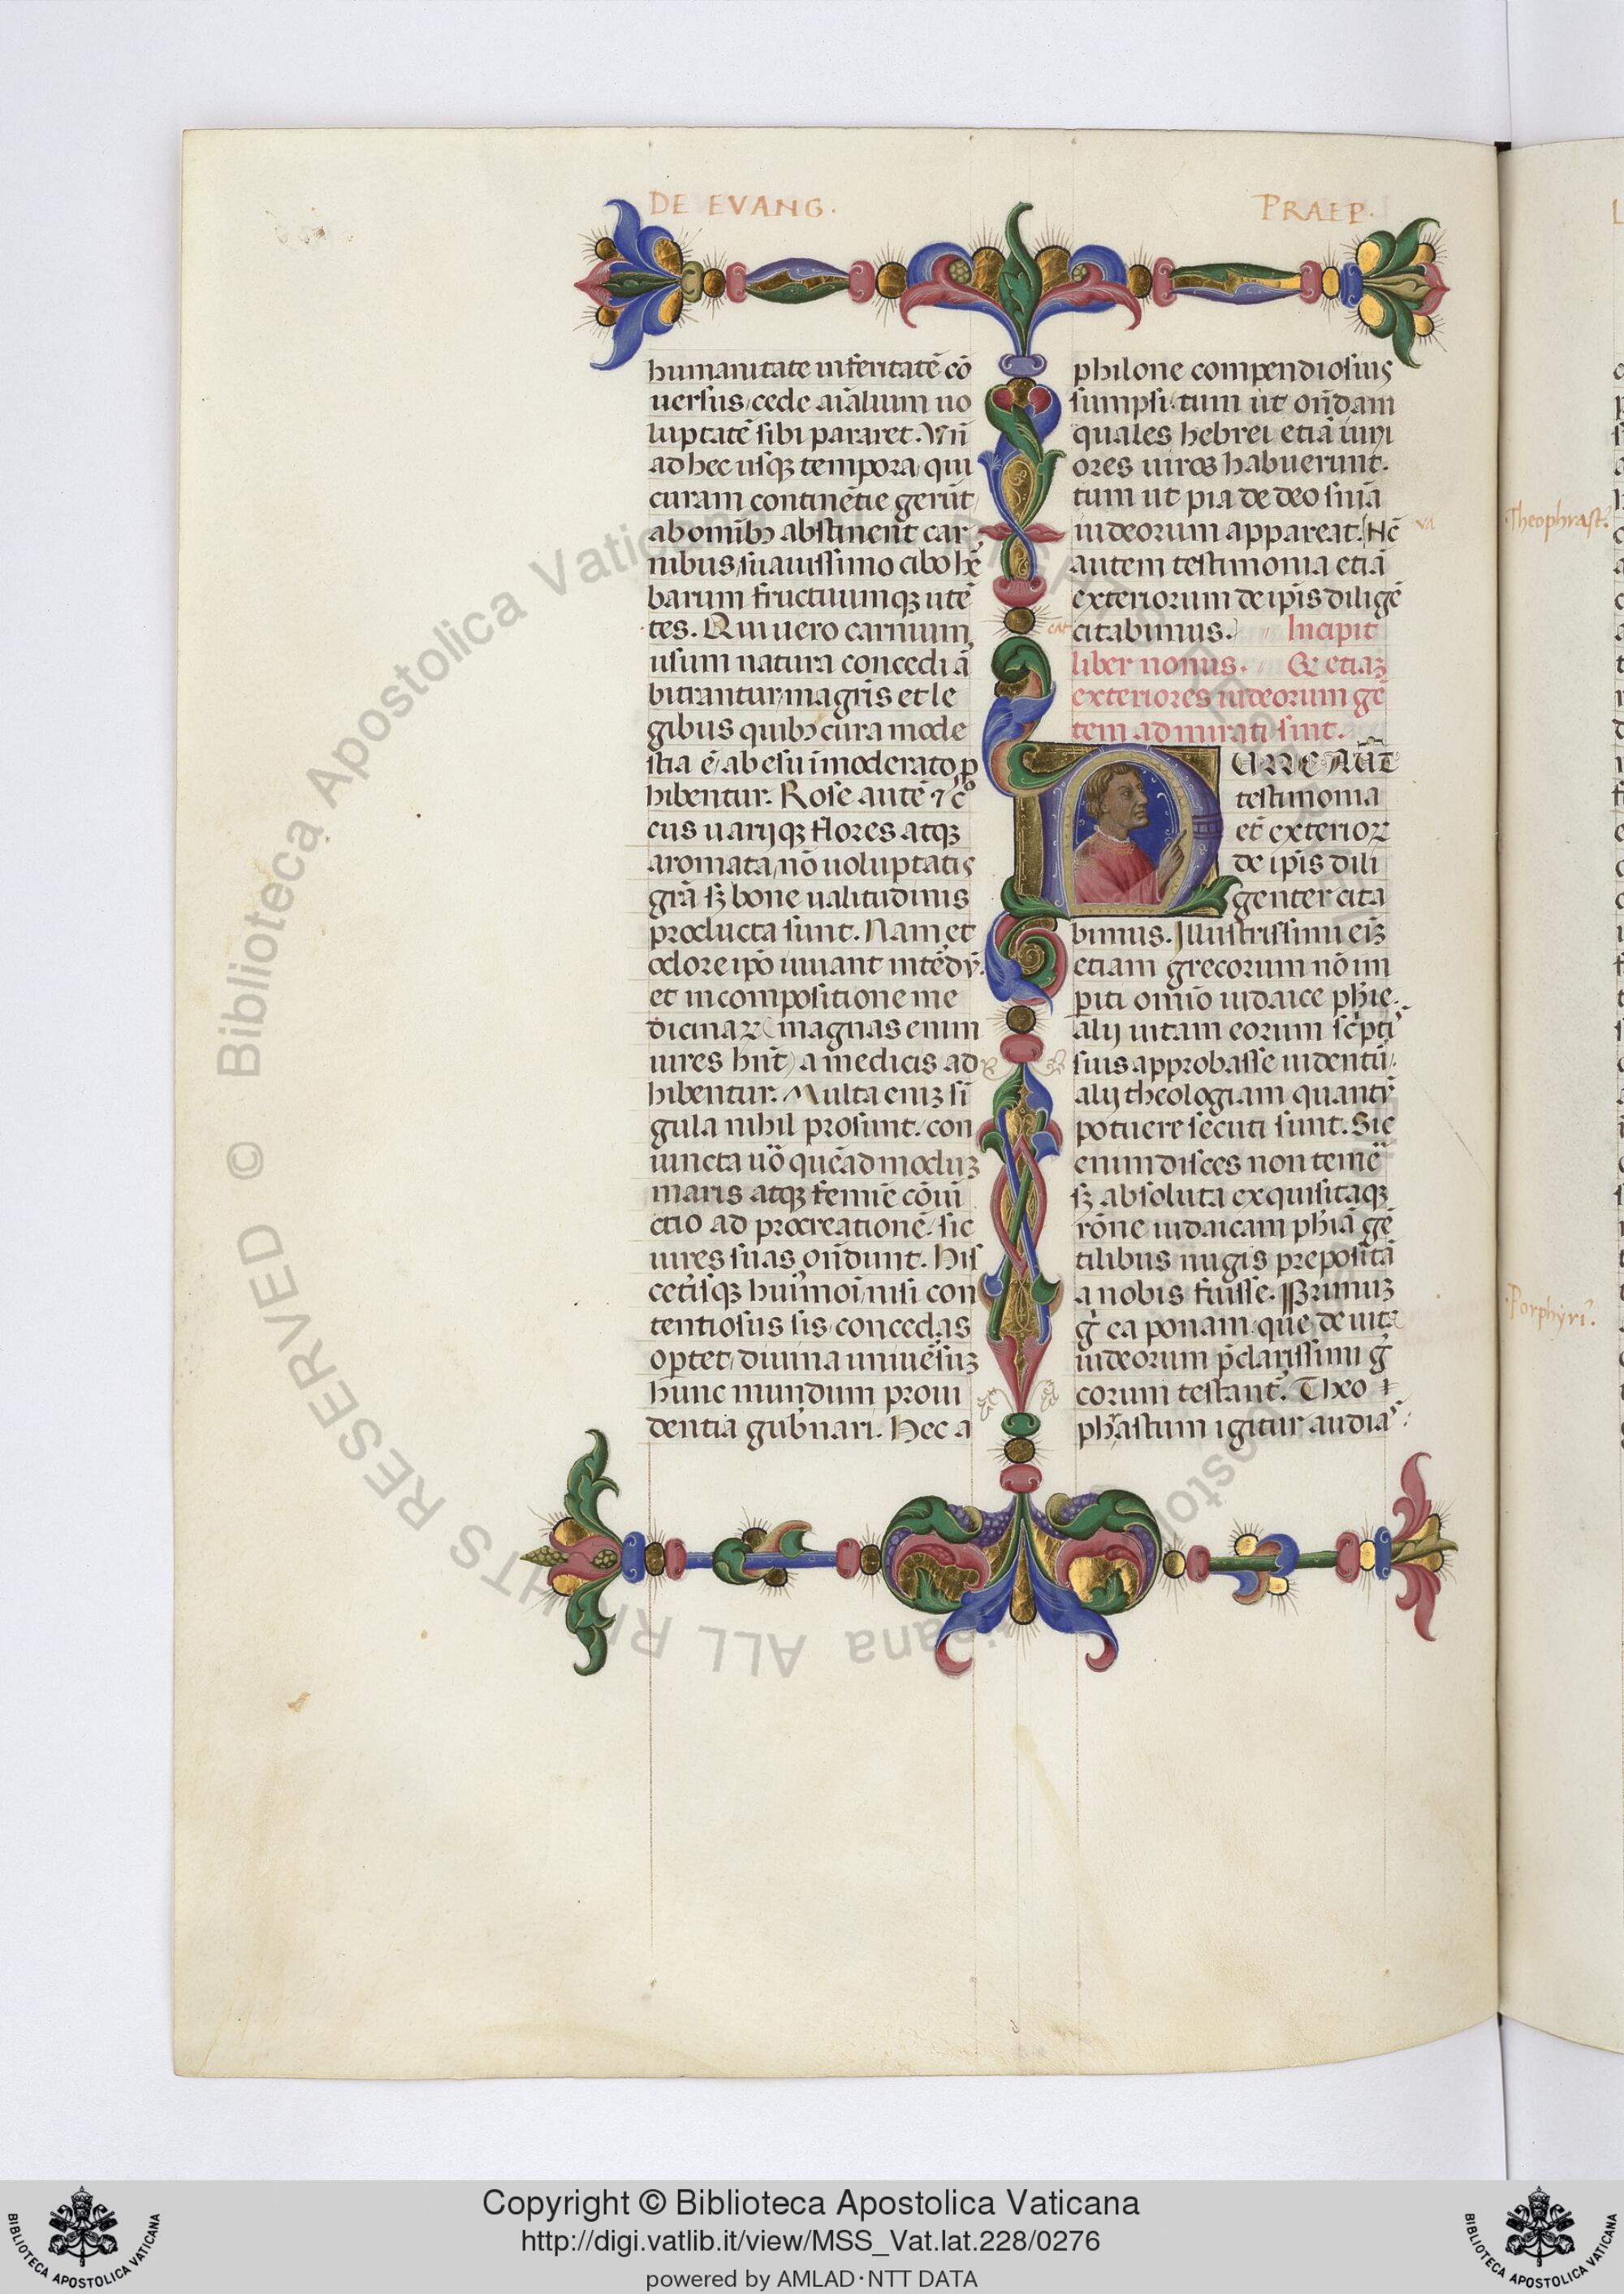 DE EVANG.
PRAEP.
humanitate in feritatē cō
uersus, cede aīalium uo
luptatē sibi pararet. Vn̄
ad hec usqꝫ tempora, qui
curam continētie gerūt
ab omībꝫ abstinent car
nibus, suauissimo cibo hē
barum fructuumqꝫ utē
tes. Qui uero carnium
usum natura concedi ā
bitrantur, magr̄is et le
gibus quibꝫ cura mode
stia ē, ab esu īmoderato ꝓ
hibentur. Rose autē ⁊ cͦ
cus uarijqꝫ flores atqꝫ
aromata, nō uoluptatis
gr̄a sꝫ bone ualitudinis
producta sunt. Nam et
odore ipō iuuant interdū.
et in compositione me
dicinaꝝ (magnas enim
uires hn̄t) a medicis ad
hibentur. Multa eniꝫ si
gula nihil prosunt. con
iuncta uō quēadmoduꝫ
maris atqꝫ femīe cōiūi
ctio ad procreationē, sic
uires suas on̄dunt. His
ceterīsqꝫ huīmoi, nisi con
tentiosus sis, concedas
optet, diuina uniuersuꝫ
hunc mundum proui
dentia gub̄nari. Hec a
philone compendiosius
sumpsi. tum ut on̄dam
quales hebrei etiā iuni
ores uiros habuerunt.
tum ut pia de deo sn̄ia
iudeorum appareat. Hc̄
autem testimonia etiā
exteriorum de ip̄is diligē
citabimus. Incipit
liber nonus. Qꝫ etiaꝫ
exteriores iudeorum gē
tem admirati sint.
UNE AUT
testimonia
et exterioꝝ
de ip̄is dili
genter cita
bimus. Illustrissimi eīꝫ
etiam grecorum nō im
piti omīo iudaice ph̄ie.
alij uitam eorum sc̄pti
suis approbasse uidentū.
alij theologiam quantū
potuere secuti sunt. Sic
enim disces non temē
sꝫ absoluta exquisitaqꝫ
rōne iudaicam ph̄iā gē
tilibus nugis prepositā
a nobis fuisse. Primuꝫ
g̊ ea ponam. que de uita
iudeorum p̄clarissimi g̅
corum testant᷑. Theo
phrastum igitur audiaᵐ
Theophrast.
Porphyri.
© Biblioteca Apostolica Vaticana ALL RIGHTS RESERVED
Copyright © Biblioteca Apostolica Vaticana
http://digi.vatlib.it/view/MSS_Vat.lat.228/0276
powered by AMLAD·NTT DATA
BIBLIOTECA APOSTOLICA VATICANA
BIBLIOTECA APOSTOLICA VATICANA